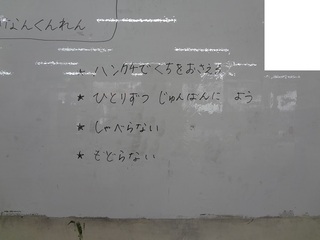 なんくんれん
・ハンカチでくちをおさえる
★ ひとりずつ じゅんばんに よう
★ しゃべらない
★ もどらない